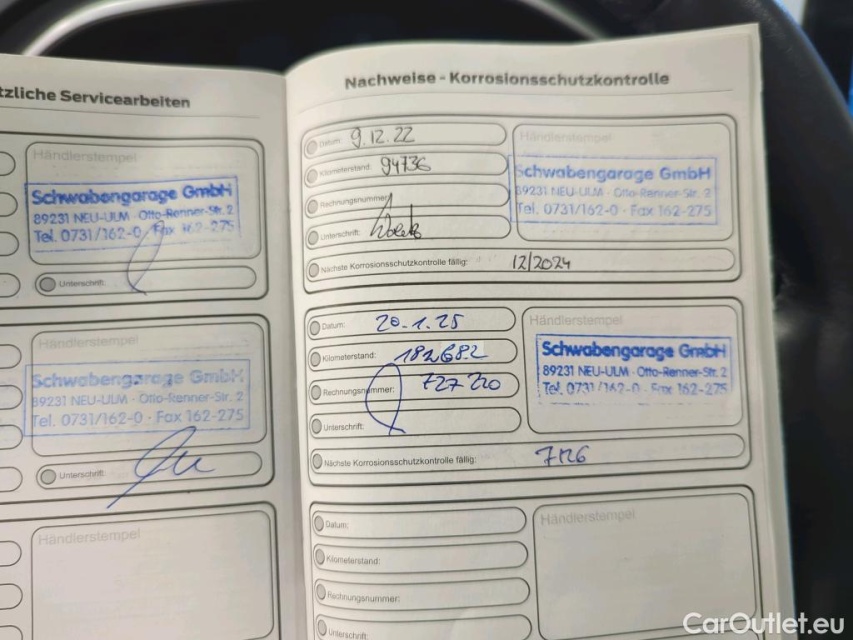 tzliche Servicearbeiten
Händlerstempel
Schwabengarage GmbH
89231 NEU-ULM · Otto-Renner-Str. 2
Tel. 0731/162-0 · Fax 162-275
Unterschrift:
Händlerstempel
Schwabengarage GmbH
89231 NEU-ULM · Otto-Renner-Str. 2
Tel. 0731/162-0 · Fax 162-275
Unterschrift:
Händlerstempel
Nachweise - Korrosionsschutzkontrolle
Datum: 9.12.22
Kilometerstand: 94736
Rechnungsnummer:
Unterschrift:
Händlerstempel
Schwabengarage GmbH
89231 NEU-ULM · Otto-Renner-Str. 2
Tel. 0731/162-0 · Fax 162-275
Nächste Korrosionsschutzkontrolle fällig: 12/2024
Datum: 20.1.25
Kilometerstand: 182682
Rechnungsnummer: 727220
Unterschrift:
Händlerstempel
Schwabengarage GmbH
89231 NEU-ULM · Otto-Renner-Str. 2
Tel. 0731/162-0 · Fax 162-275
Nächste Korrosionsschutzkontrolle fällig:
Datum:
Kilometerstand:
Rechnungsnummer:
Unterschrift:
Händlerstempel
CarOutlet.eu